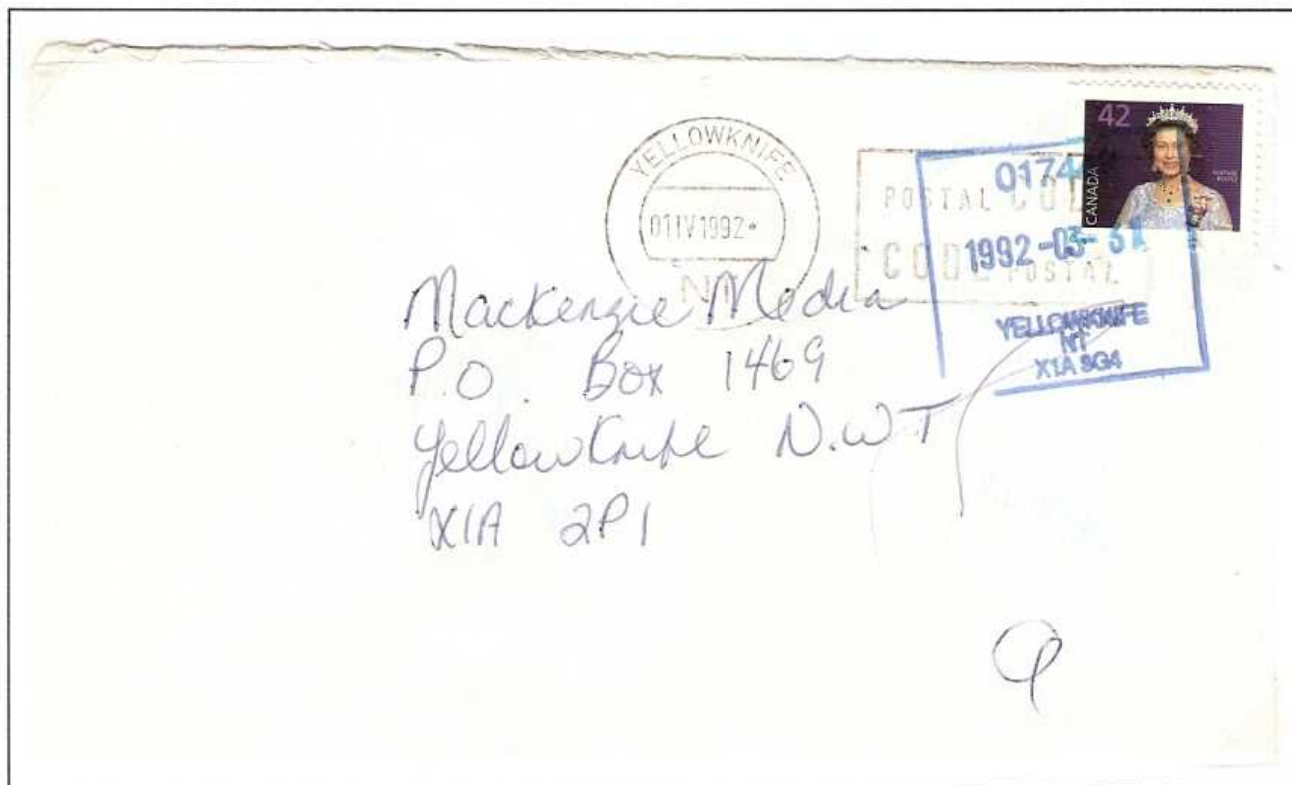 YELLOWKNIFE
01 IV 1992
NT
POSTAL CODE
CODE POSTAL
42
CANADA
1992-03-31
YELLOWKNIFE
NT
X1A 3G4
Mackenzie Media
P.O. Box 1469
YellowKnife N.W.T
X1A 2P1